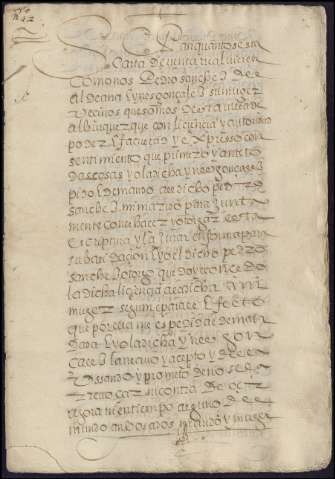 Sepan quantos esta
Carta de venta real vieren
Como nos Pedro sanchez de
aldeana E ynes gonçalez su muger
vecinos que somos desta villa de
alburquerque con liçençia y autorio
poder E facultad y expresso con
sentimiento que primero y ante to
das cosas yo la dicha ynes gonçalez
pido E demando a el dicho pedro
sanchez mi marido para junta
mente con el hacer y otorgar esta
escriptura y la jurar en forma para
su baridacion E yo el dicho pedro
sanchez otorgo que doy e conçedo
la dicha liçençia a la dicha mi
muger segun e para el Efecto
que por ella me es pedida e deman
dada E yo la dicha ynes gon
çalez la reçivo y acepto y de ella
Ussando y prometo de no se la
revocar ni contra decir
agora ni en tiempo alguno del
mundo anbos a dos marido y muger